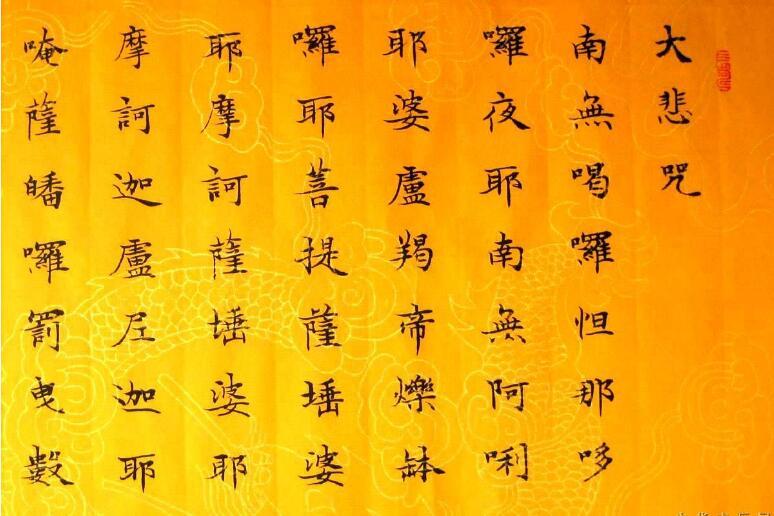 大悲咒
南無喝囉怛那哆
囉夜耶南無阿唎
耶婆盧羯帝爍缽
囉耶菩提薩埵婆
耶摩訶薩埵婆耶
摩訶迦盧尼迦耶
唵薩皤囉罰曳數